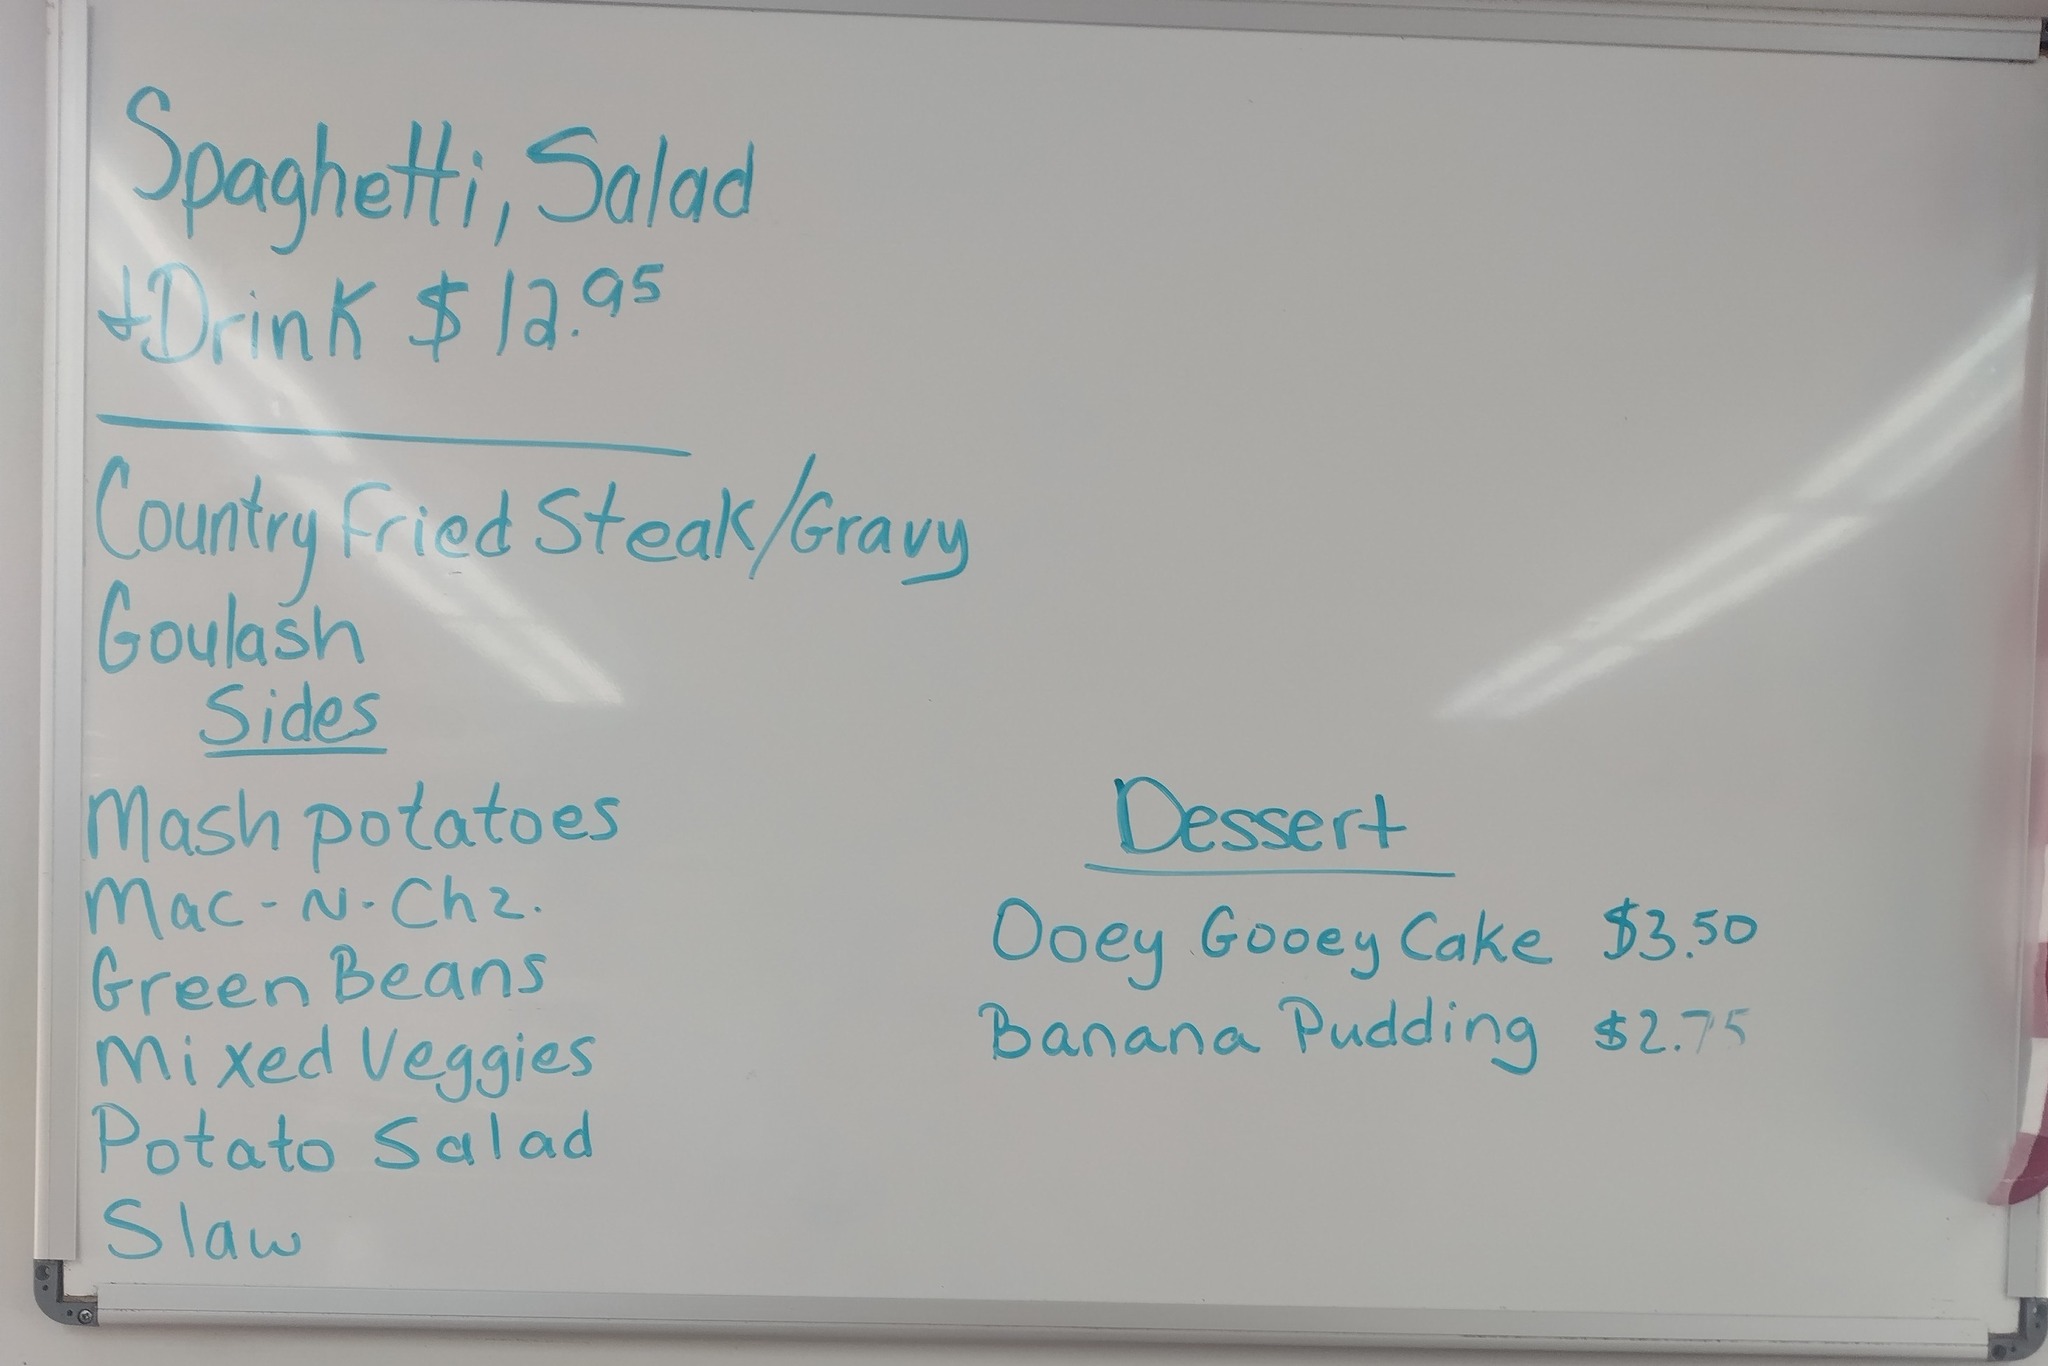 Spaghetti, Salad
+Drink $12.95
Country Fried Steak/Gravy
Goulash
Sides
Mash potatoes
Mac-N-Chz.
Green Beans
Mixed Veggies
Potato Salad
Slaw
Dessert
Ooey Gooey Cake $3.50
Banana Pudding $2.75